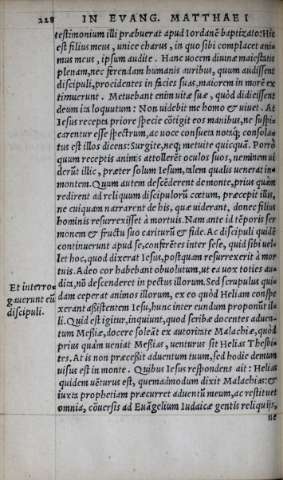 228 IN EVANG. MATTHAEI
testimonium illi præbuerat apud Iordanē baptizato: Hic
est filius meus, unice charus, in quo sibi complacet ani-
mus meus, ipsum audite. Hanc uocem diuinæ maiestatis
plenam, nec ferendam humanis auribus, quum audissent
discipuli, procidentes in facies suas, maiorem in morē ex
timuerunt. Metuebant enim uitæ suæ, quòd didicissent
deum ita loquutum: Non uidebit me homo & uiuet. At
Iesus recepta priore specie cōtigit eos manibus, ne suspi-
carentur esse spectrum, ac uoce consueta notáq; consola-
tus est illos dicens: Surgite, neq; metuite quicquā. Porrò
quum receptis animis attollerēt oculos suos, neminem ui
derūt illic, præter solum Iesum, talem qualis uenerat in
montem. Quum autem descēderent de monte, prius quàm
redirent ad reliquum discipulorū cœtum, præcepit illis,
ne cuiquam narrarent de his, quæ uiderant, donec filius
hominis resurrexisset à mortuis. Nam ante id tēporis ser
monem & fructu suo cariturū & fide. Ac discipuli quidē
continuerunt apud se, conferētes inter sese, quid sibi uel-
let hoc, quod dixerat Iesus, postquam resurrexerit à mor
tuis. Adeo cor habebant obuolutum, ut ea uox toties au-
dita, nō descenderet in pectus illorum. Sed scrupulus qui
dam ceperat animos illorum, ex eo quòd Heliam conspe
xerant assistentem Iesu, hunc inter eundum proponūt il-
li. Quid est igitur, inquiunt, quod scribæ docentes aduen-
tum Messiæ, docere soleāt ex autoritate Malachiæ, quòd
prius quàm ueniat Messias, uenturus sit Helias Thesbi-
tes. At is non præcessit aduentum tuum, sed hodie demum
uisus est in monte. Quibus Iesus respondens ait: Helias
quidem uēturus est, quemadmodum dixit Malachias: &
iuxta prophetiam præcurret aduentū meum, ac restituet
omnia, cōuersis ad Euāgelium Iudaicæ gentis reliquijs,
ue
Et interro-
gauerunt eū
discipuli.